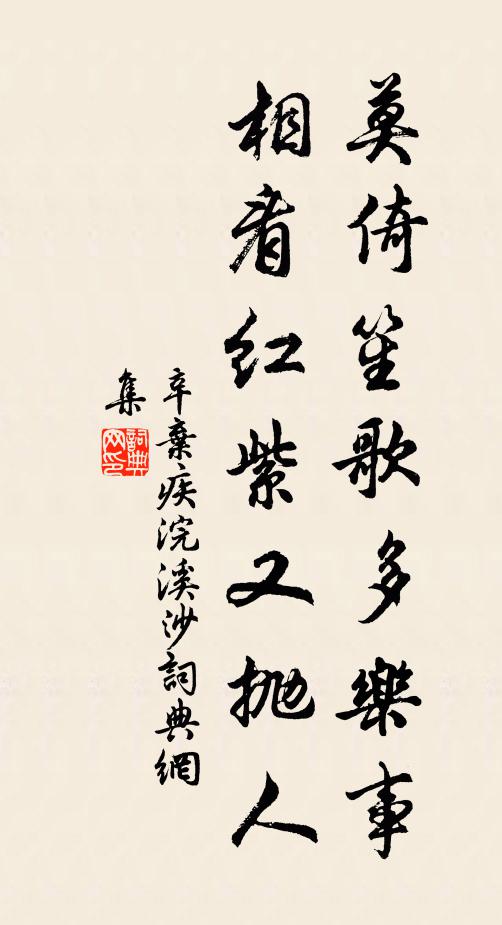 莫倚笙歌多樂事
相看紅紫又拋人
辛棄疾浣溪沙詞典網
集
詞典网印